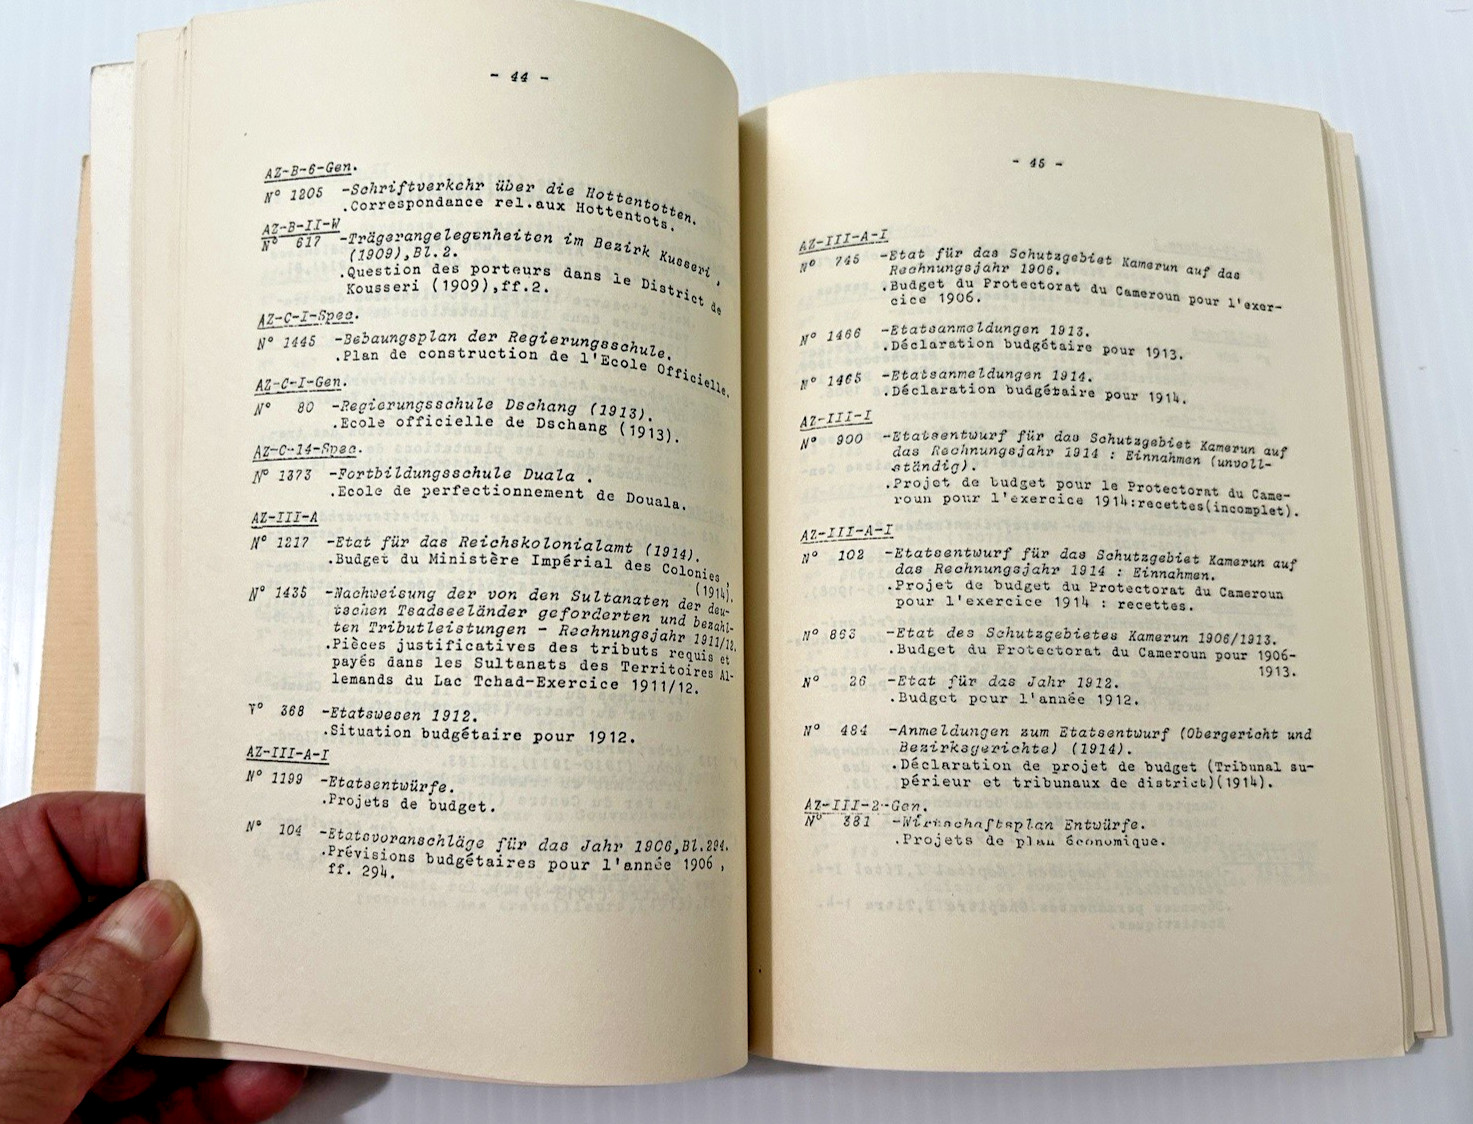 - 44 -
AZ-B-6-Gen.
N° 1205 -Schriftverkehr über die Hottentotten.
.Correspondance rel.aux Hottentots.
AZ-B-II-W
N° 617 -Trägerangelegenheiten im Bezirk Kusseri,
(1909),Bl.2.
.Question des porteurs dans le District de
Kousseri (1909),ff.2.
AZ-C-I-Spec.
N° 1445 -Bebaungsplan der Regierungsschule.
.Plan de construction de l'Ecole Officielle.
AZ-C-I-Gen.
N° 80 -Regierungsschule Dschang (1913).
.Ecole officielle de Dschang (1913).
AZ-C-14-Spec.
N° 1373 -Fortbildungsschule Duala .
.Ecole de perfectionnement de Douala.
AZ-III-A
N° 1217 -Etat für das Reichskolonialamt (1914).
.Budget du Ministère Impérial des Colonies,
(1914).
N° 1435 -Nachweisung der von den Sultanaten der deu-
tschen Tsadseeländer geforderten und bezahl-
ten Tributleistungen - Rechnungsjahr 1911/12.
.Pièces justificatives des tributs requis et
payés dans les Sultanats des Territoires Al-
lemands du Lac Tchad-Exercice 1911/12.
N° 368 -Etatswesen 1912.
.Situation budgétaire pour 1912.
AZ-III-A-I
N° 1199 -Etatsentwürfe.
.Projets de budget.
N° 104 -Etatsvoranschläge für das Jahr 1906,Bl.294.
.Prévisions budgétaires pour l'année 1906,
ff. 294.
- 45 -
AZ-III-A-I
N° 745 -Etat für das Schutzgebiet Kamerun auf das
Rechnungsjahr 1906.
.Budget du Protectorat du Cameroun pour l'exer-
cice 1906.
N° 1466 -Etatsanmeldungen 1913.
.Déclaration budgétaire pour 1913.
N° 1465 -Etatsanmeldungen 1914.
.Déclaration budgétaire pour 1914.
AZ-III-I
N° 900 -Etatsentwurf für das Schutzgebiet Kamerun auf
das Rechnungsjahr 1914 : Einnahmen (unvoll-
ständig).
.Projet de budget pour le Protectorat du Came-
roun pour l'exercice 1914:recettes(incomplet).
AZ-III-A-I
N° 102 -Etatsentwurf für das Schutzgebiet Kamerun auf
das Rechnungsjahr 1914 : Einnahmen.
.Projet de budget du Protectorat du Cameroun
pour l'exercice 1914 : recettes.
N° 863 -Etat des Schutzgebietes Kamerun 1906/1913.
.Budget du Protectorat du Cameroun pour 1906-
1913.
N° 26 -Etat für das Jahr 1912.
.Budget pour l'année 1912.
N° 484 -Anmeldungen zum Etatsentwurf (Obergericht und
Bezirksgerichte) (1914).
.Déclaration de projet de budget (Tribunal su-
périeur et tribunaux de district)(1914).
AZ-III-2-Gen.
N° 381 -Wirtschaftsplan Entwürfe.
.Projets de plan économique.